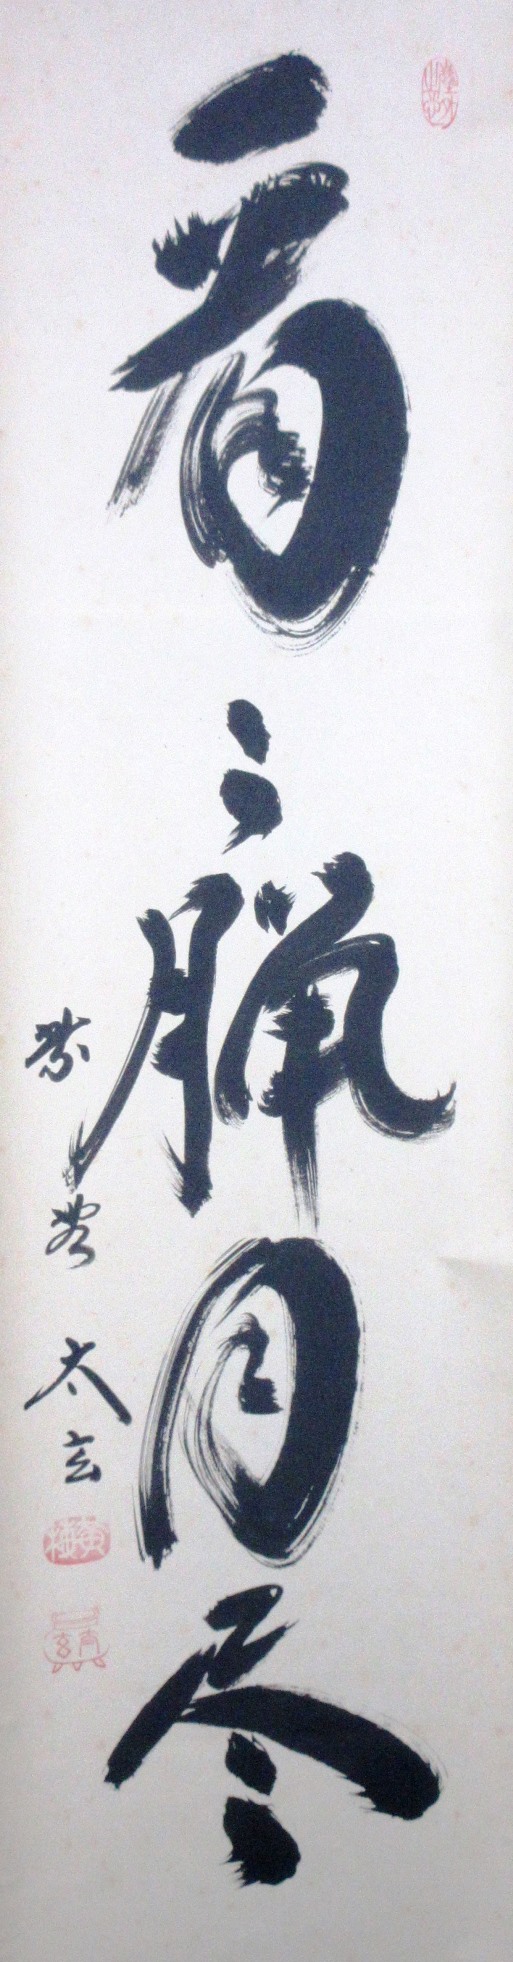 看々臘月尽
紫野 太玄